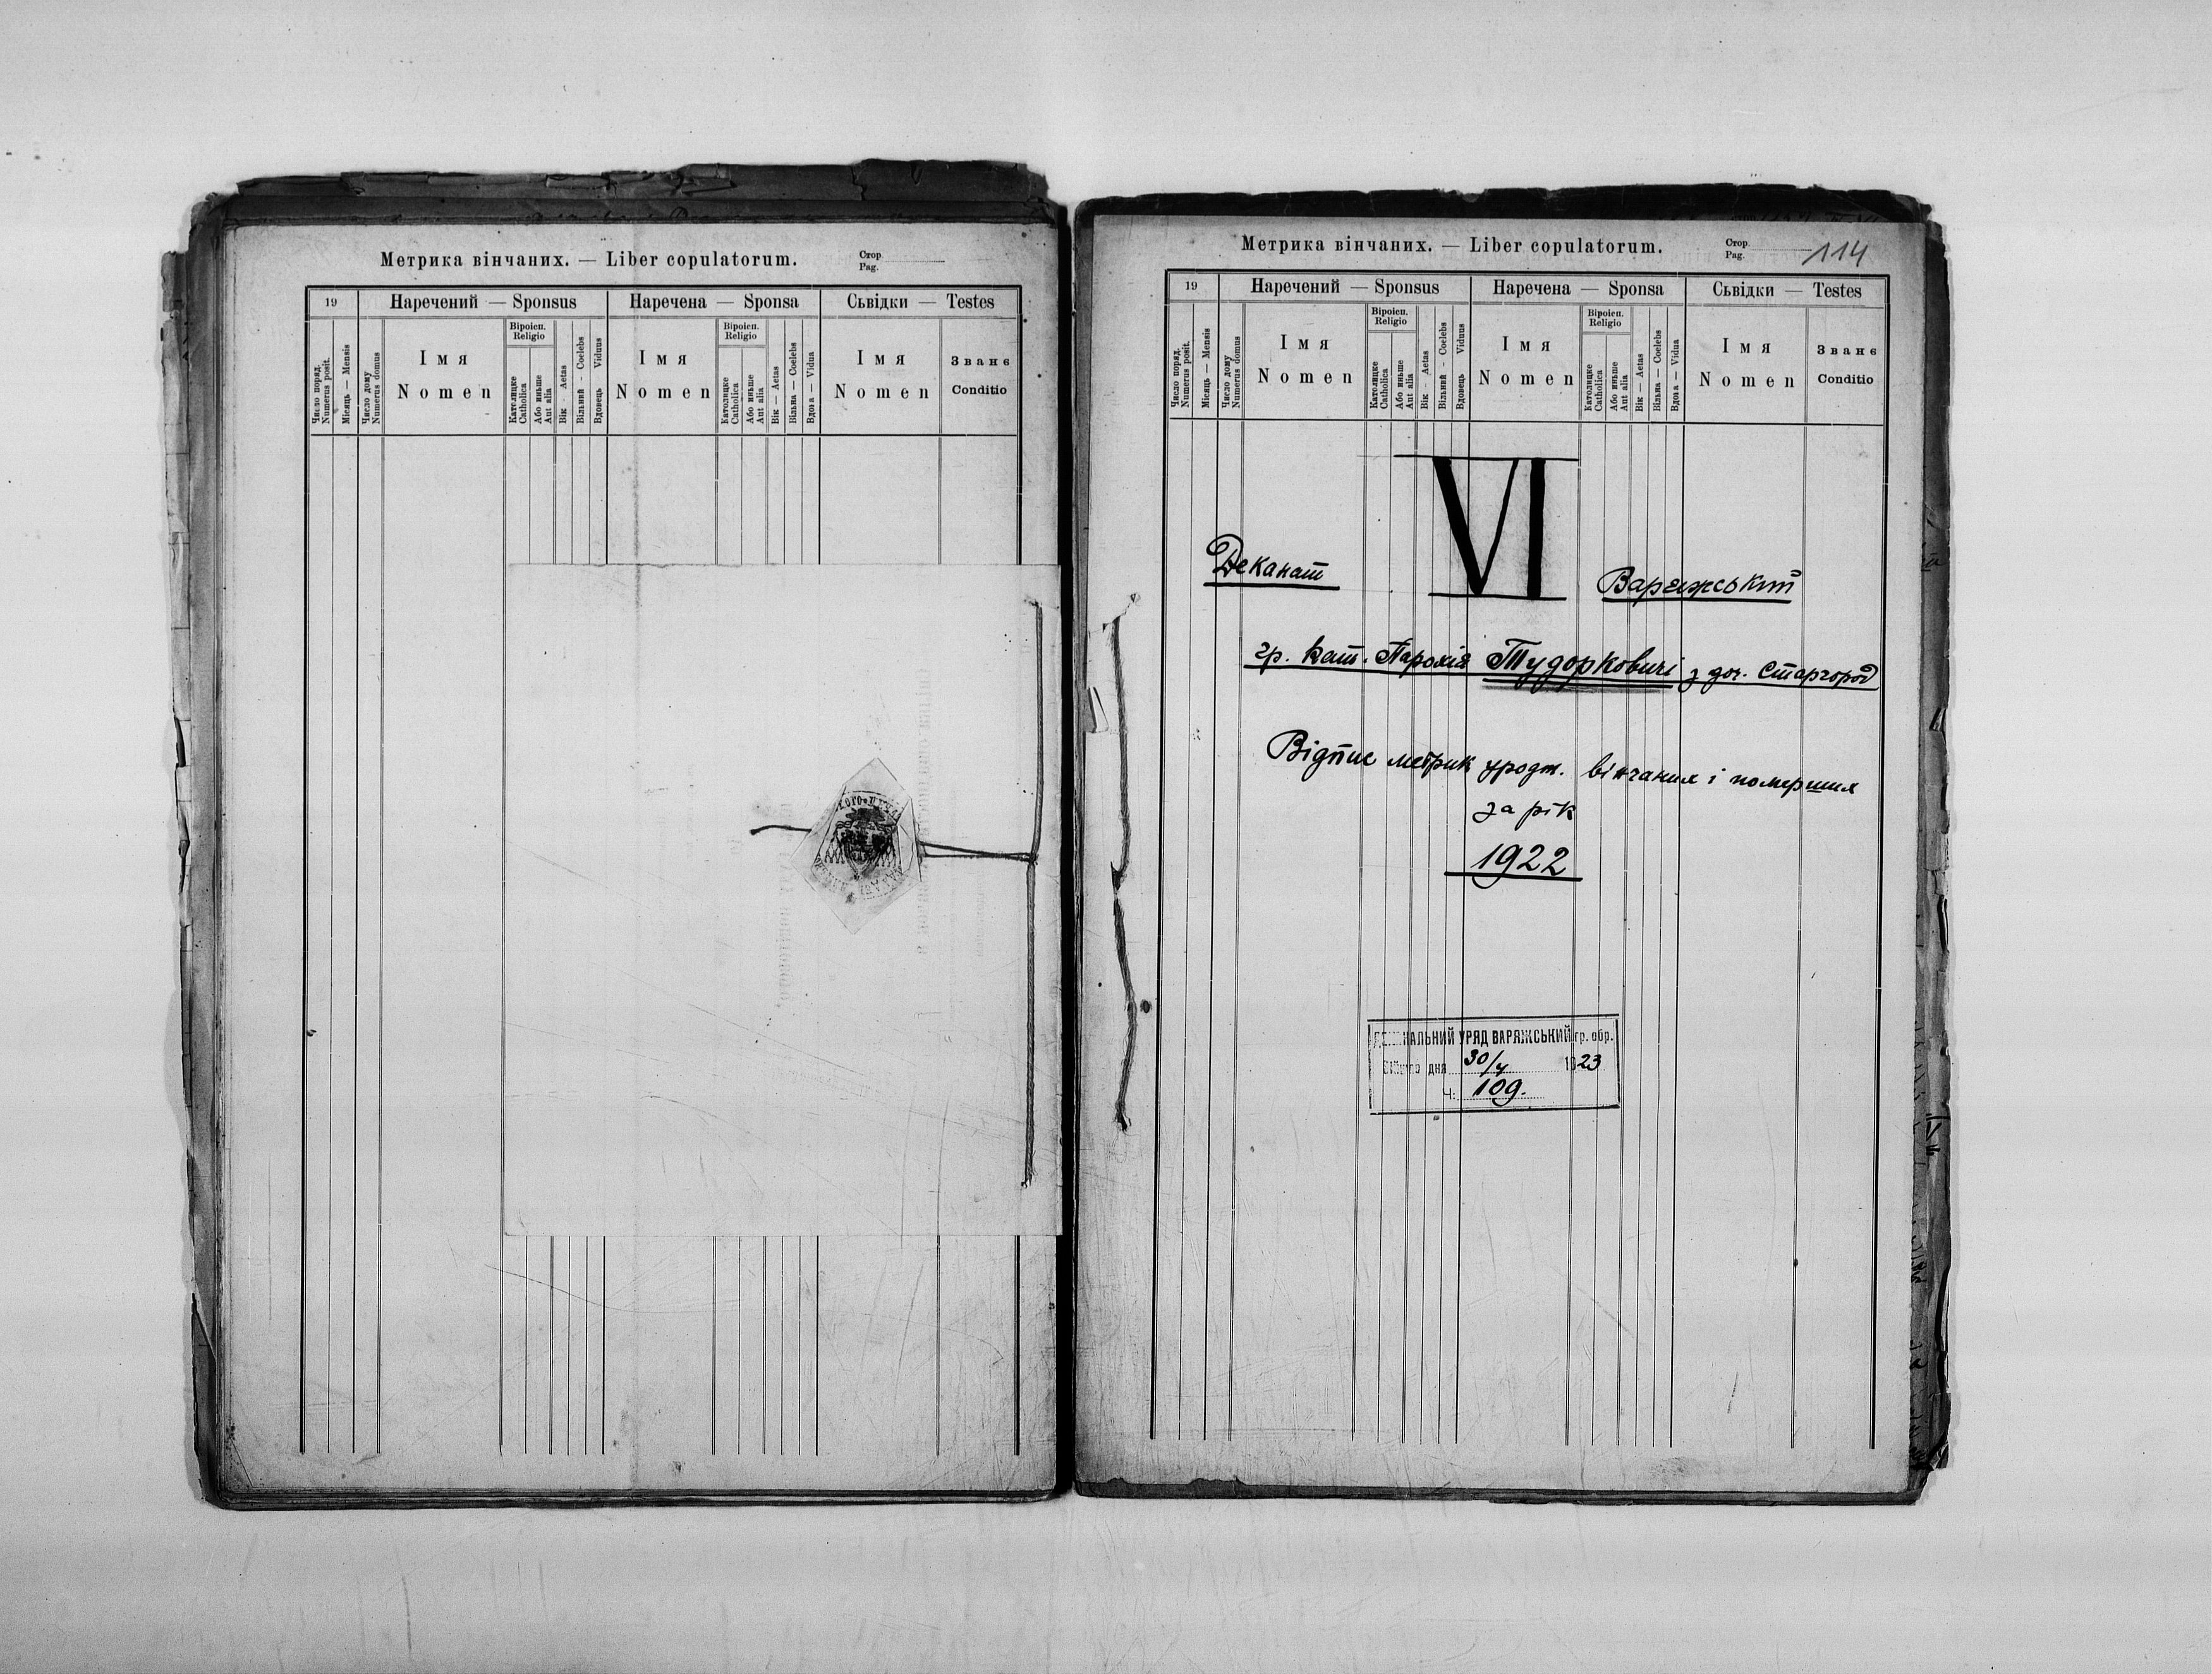 Метрика вінчаних. — Liber copulatorum.
Стор.
Pag.
19
Наречений — Sponsus
Наречена — Sponsa
Сьвідки — Testes
Число поряд.
Numerus posit.
Місяць — Mensis
Число дому
Numerus domus
Імя
Nomen
Віроісп.
Religio
Католицке
Catholica
Або иньше
Aut alia
Вік - Aetas
Вільний - Coelebs
Вдовець Viduus
Імя
Nomen
Віроісп.
Religio
Католицке
Catholica
Або иньше
Aut alia
Вік — Aetas
Вільна — Coelebs
Вдова — Vidua
Імя
Nomen
Званє
Conditio
Метрика вінчаних. — Liber copulatorum.
Стор.
Pag.
114
19
Наречений — Sponsus
Наречена — Sponsa
Сьвідки — Testes
Число поряд.
Numerus posit.
Місяць — Mensis
Число дому
Numerus domus
Імя
Nomen
Віроісп.
Religio
Католицке
Catholica
Або иньше
Aut alia
Вік - Aetas
Вільний - Coelebs
Вдовець Viduus
Імя
Nomen
Віроісп.
Religio
Католицке
Catholica
Або иньше
Aut alia
Вік — Aetas
Вільна — Coelebs
Вдова — Vidua
Імя
Nomen
Званє
Conditio
VI
Деканат Варяжський
гр. кат. Парохія Тудорковичі з доч. Старгород
Відпис метрик уродж. вінчаних і померших
за рік
1922
УРЯД ВАРЯЖСЬКИЙ гр. обр.
дня 30/4 1923
Ч: 109.